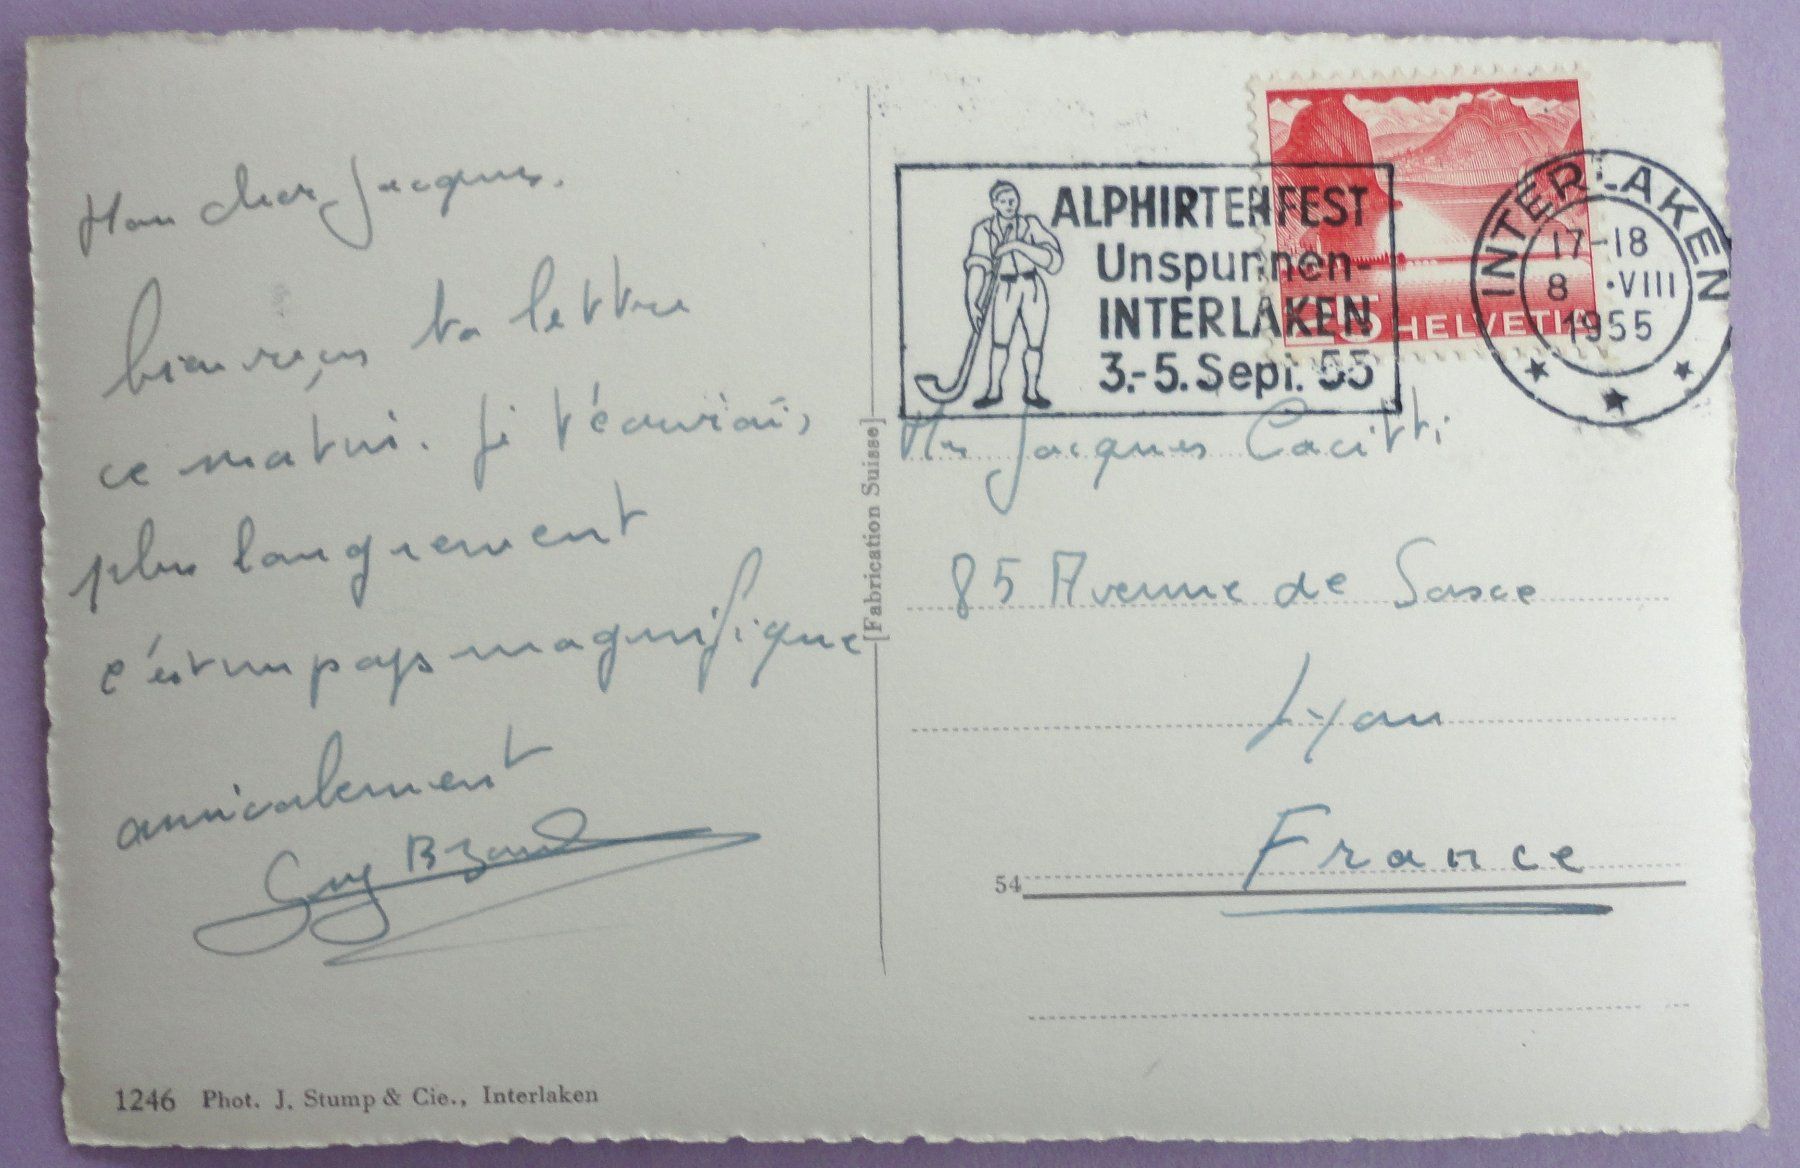 Mon cher Jacques.
bien reçu ta lettre
ce matin. Je t'écrirais
plus longuement
c'est un pays magnifique
amicalement
Guy
1246 Phot. J. Stump & Cie., Interlaken
[Fabrication Suisse]
ALPHIRTENFEST
Unspunnen-
INTERLAKEN
3.-5. Sept. 55
HELVETIA
INTERLAKEN
17-18
8.VIII
1955
Mr Jacques Cacitti
85 Avenue de Saxe
Lyon
France
54